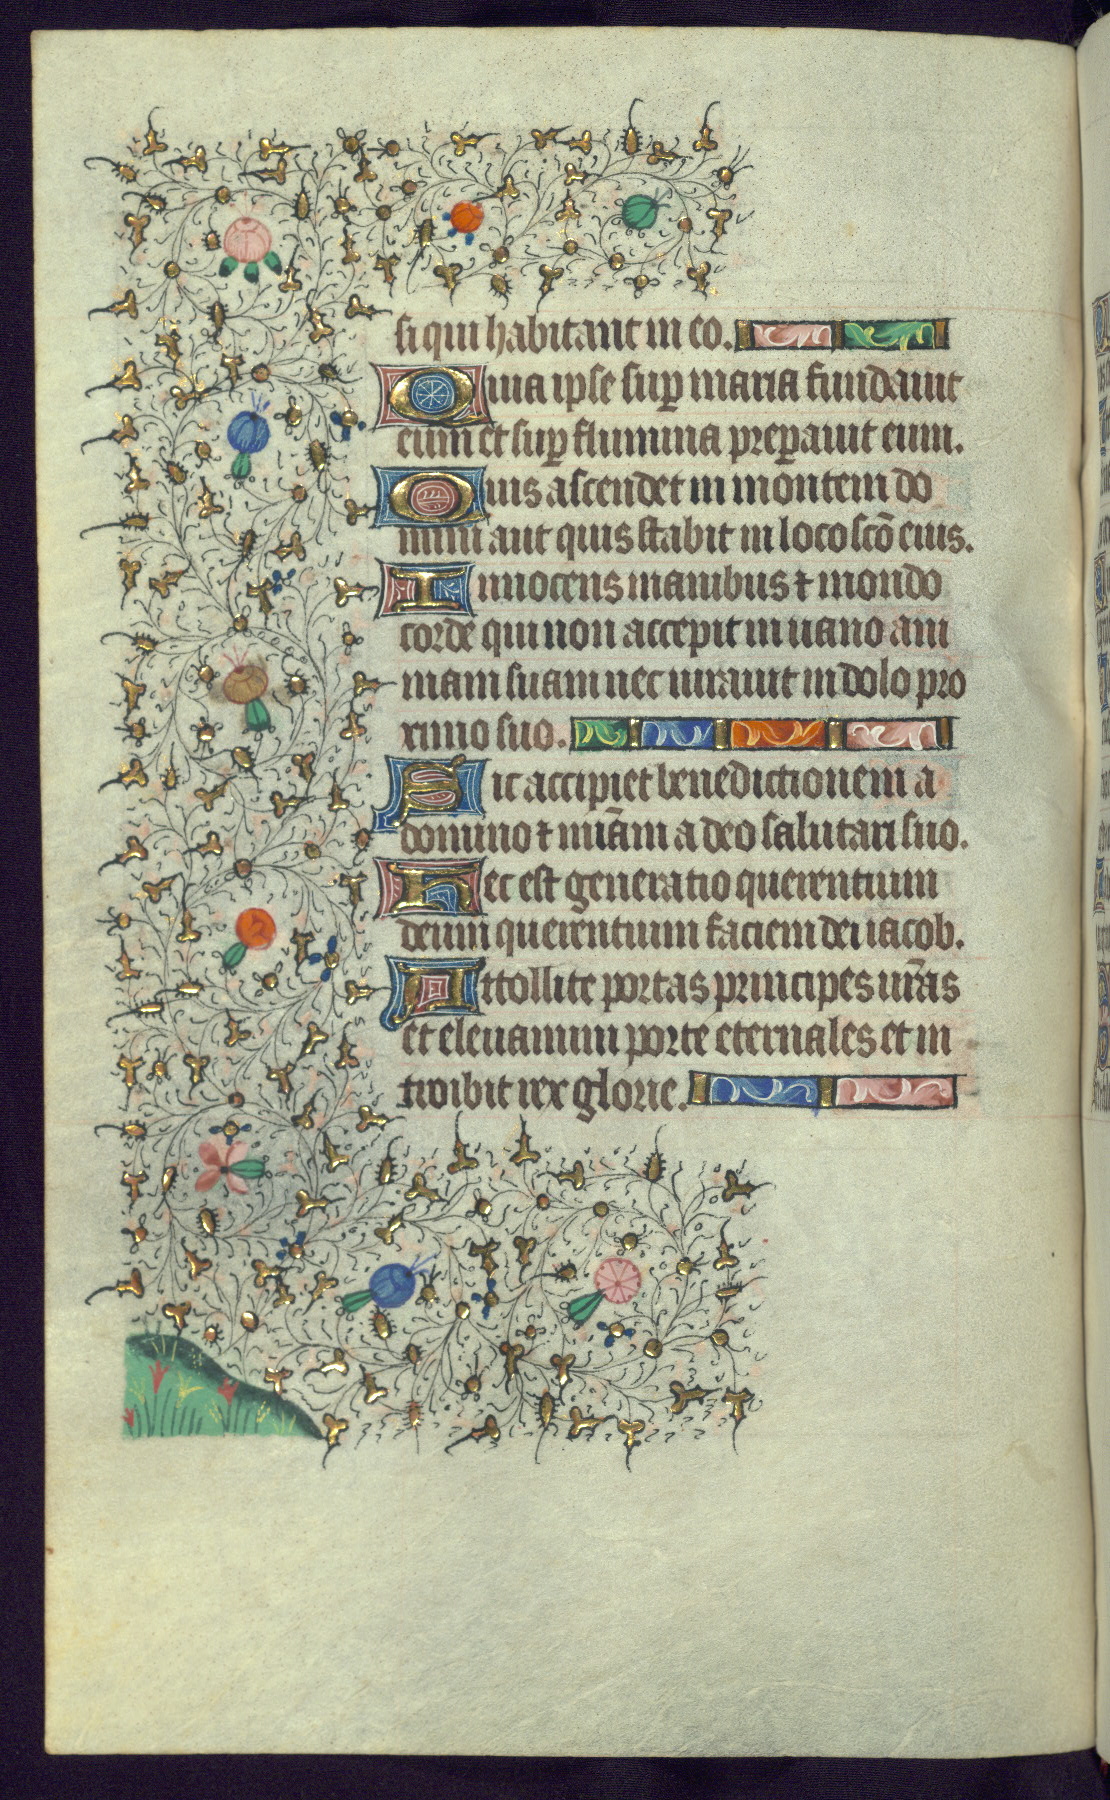 si qui habitant in eo.
Quia ipse sup maria fundauit
eum et sup flumina preparauit eum.
Quis ascendet in montem do
mini aut quis stabit in loco scō eius.
Innocens manibus ⁊ mondo
corde qui non accepit in uano ani
mam suam nec iurauit in dolo pro
ximo suo.
Sic accipiet benedictionem a
domino ⁊ miām a deo salutari suo.
Hec est generatio querentium
deum querentium faciem dei iacob.
Attollite portas principes urās
et eleuamini porte eternales et in
troibit rex glorie.